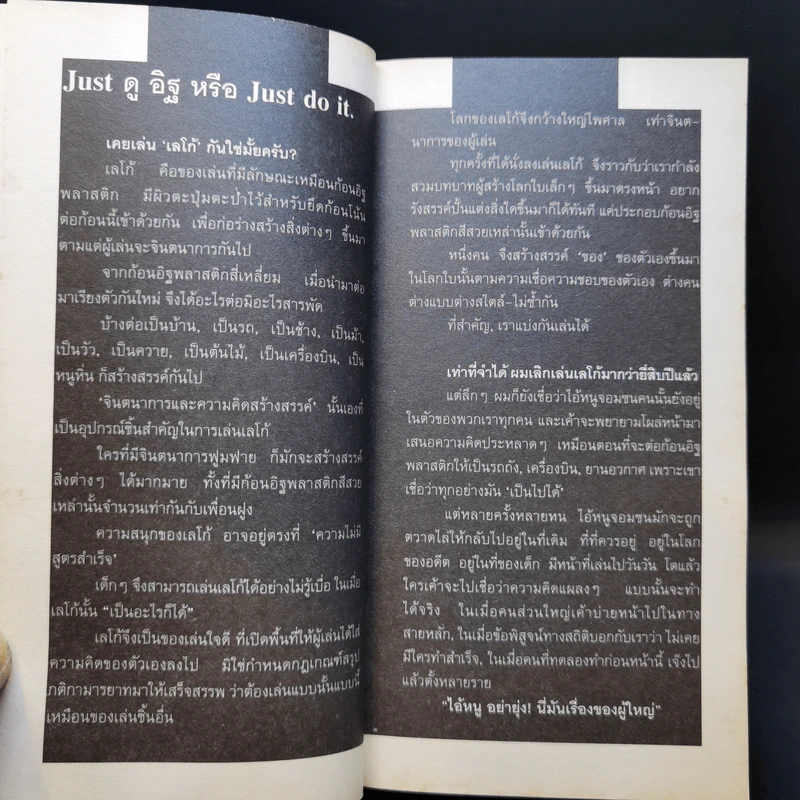 Just ดู อิฐ หรือ Just do it.
เคยเล่น ‘เลโก้’ กันใช่มั้ยครับ?
เลโก้ คือของเล่นที่มีลักษณะเหมือนก้อนอิฐ
พลาสติก มีผิวตะปุ่มตะป่ำไว้สำหรับยึดก้อนโน้น
ต่อก้อนนี้เข้าด้วยกัน เพื่อก่อร่างสร้างสิ่งต่างๆ ขึ้นมา
ตามแต่ผู้เล่นจะจินตนาการกันไป
จากก้อนอิฐพลาสติกสี่เหลี่ยม เมื่อนำมาต่อ
มาเรียงตัวกันใหม่ จึงได้อะไรต่อมิอะไรสารพัด
บ้างต่อเป็นบ้าน, เป็นรถ, เป็นช้าง, เป็นม้า,
เป็นวัว, เป็นควาย, เป็นต้นไม้, เป็นเครื่องบิน, เป็น
หนูหิ่น ก็สร้างสรรค์กันไป
‘จินตนาการและความคิดสร้างสรรค์’ นั้นเองที่
เป็นอุปกรณ์ชิ้นสำคัญในการเล่นเลโก้
ใครที่มีจินตนาการฟูมฟาย ก็มักจะสร้างสรรค์
สิ่งต่างๆ ได้มากมาย ทั้งที่มีก้อนอิฐพลาสติกสีสวย
เหล่านั้นจำนวนเท่ากันกับเพื่อนฝูง
ความสนุกของเลโก้ อาจอยู่ตรงที่ ‘ความไม่มี
สูตรสำเร็จ’
เด็กๆ จึงสามารถเล่นเลโก้ได้อย่างไม่รู้เบื่อ ในเมื่อ
เลโก้นั้น “เป็นอะไรก็ได้”
เลโก้จึงเป็นของเล่นใจดี ที่เปิดพื้นที่ให้ผู้เล่นได้ใส่
ความคิดของตัวเองลงไป มิใช่กำหนดกฎเกณฑ์สรุป
กติกามารยาทมาให้เสร็จสรรพ ว่าต้องเล่นแบบนั้นแบบนี้
เหมือนของเล่นชิ้นอื่น
โลกของเลโก้จึงกว้างใหญ่ไพศาล เท่าจินต-
นาการของผู้เล่น
ทุกครั้งที่ได้นั่งลงเล่นเลโก้ จึงราวกับว่าเรากำลัง
สวมบทบาทผู้สร้างโลกใบเล็กๆ ขึ้นมาตรงหน้า อยาก
รังสรรค์ปั้นแต่งสิ่งใดขึ้นมาก็ได้ทันที แค่ประกอบก้อนอิฐ
พลาสติกสีสวยเหล่านั้นเข้าด้วยกัน
หนึ่งคน จึงสร้างสรรค์ ‘ของ’ ของตัวเองขึ้นมา
ในโลกใบนั้นตามความเชื่อความชอบของตัวเอง ต่างคน
ต่างแบบต่างสไตล์-ไม่ซ้ำกัน
ที่สำคัญ, เราแบ่งกันเล่นได้
เท่าที่จำได้ ผมเลิกเล่นเลโก้มากว่ายี่สิบปีแล้ว
แต่ลึกๆ ผมก็ยังเชื่อว่าไอ้หนูจอมซนคนนั้นยังอยู่
ในตัวของพวกเราทุกคน และเค้าจะพยายามโผล่หน้ามา
เสนอความคิดประหลาดๆ เหมือนตอนที่จะต่อก้อนอิฐ
พลาสติกให้เป็นรถถัง, เครื่องบิน, ยานอวกาศ เพราะเขา
เชื่อว่าทุกอย่างมัน ‘เป็นไปได้’
แต่หลายครั้งหลายหน ไอ้หนูจอมซนมักจะถูก
ตวาดไล่ให้กลับไปอยู่ในที่เดิม ที่ที่ควรอยู่ อยู่ในโลก
ของอดีต อยู่ในที่ของเด็ก มีหน้าที่เล่นไปวันวัน โตแล้ว
ใครเค้าจะไปเชื่อว่าความคิดแผลงๆ แบบนั้นจะทำ
ได้จริง ในเมื่อคนส่วนใหญ่เค้าบ่ายหน้าไปในทาง
สายหลัก, ในเมื่อข้อพิสูจน์ทางสถิติบอกกับเราว่า ไม่เคย
มีใครทำสำเร็จ, ในเมื่อคนที่ทดลองทำก่อนหน้านี้ เจ๊งไป
แล้วตั้งหลายราย
“ไอ้หนู อย่ายุ่ง! นี่มันเรื่องของผู้ใหญ่”